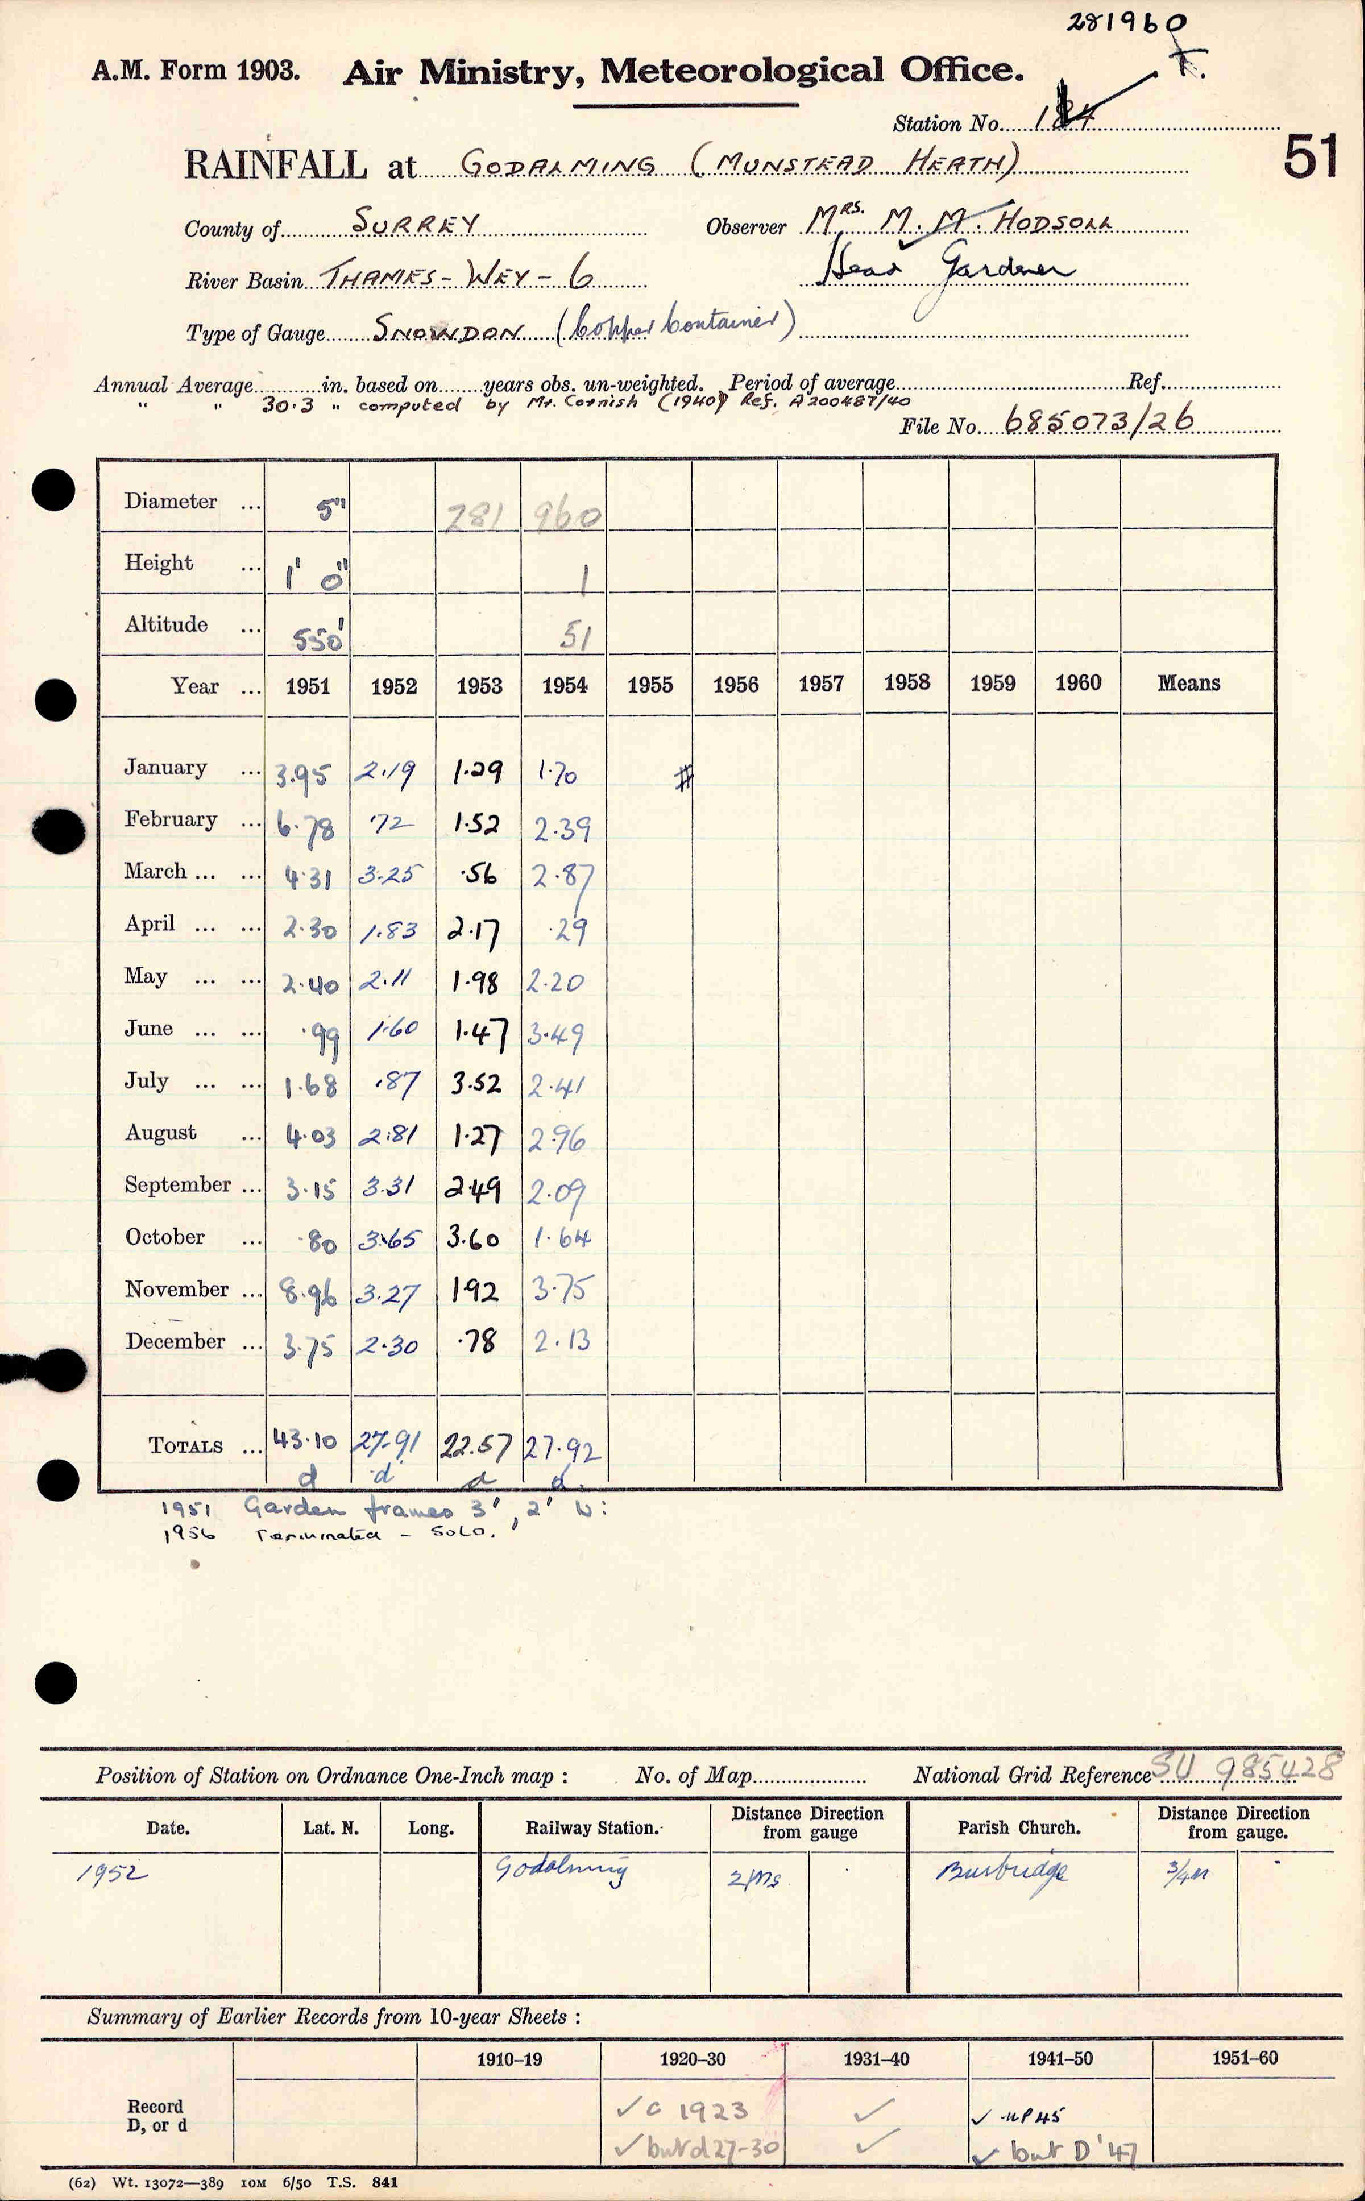 281960
A.M. Form 1903. Air Ministry, Meteorological Office.
Station No. 184
51
RAINFALL at GODALMING (MUNSTEAD HEATH)
County of SURREY Observer MRS. M. M. HODSOLL
River Basin THAMES - WEY - 6 Head Gardener
Type of Gauge SNOWDON (Copper Container)
Annual Average in. based on years obs. un-weighted. Period of average Ref.
" " 30.3 " computed by Mr. Cornish (1940) Ref. A200487/40
File No. 685073/26
Diameter ... 5" 281 960
Height ... 1' 0" 1
Altitude ... 550' 51
Year ... 1951 1952 1953 1954 1955 1956 1957 1958 1959 1960 Means
January ... 3.95 2.19 1.29 1.70 #
February ... 6.78 .72 1.52 2.39
March ... ... 4.31 3.25 .56 2.87
April ... ... 2.30 1.83 2.17 .29
May ... ... 2.40 2.11 1.98 2.20
June ... ... .99 1.60 1.47 3.49
July ... ... 1.68 .87 3.52 2.41
August ... 4.03 2.81 1.27 2.96
September ... 3.15 3.31 2.49 2.09
October ... .80 3.65 3.60 1.64
November ... 8.96 3.27 1.92 3.75
December ... 3.75 2.30 .78 2.13
TOTALS ... 43.10 27.91 22.57 27.92
d d d d
1951 Garden frames 3', 2' W:
1956 Terminated - SOLD.
Position of Station on Ordnance One-Inch map : No. of Map National Grid Reference SU 985428
Date. Lat. N. Long. Railway Station. Distance Direction from gauge Parish Church. Distance Direction from gauge.
1952 Godalming 2 Mls Busbridge 3/4 M
Summary of Earlier Records from 10-year Sheets :
1910–19 1920–30 1931–40 1941–50 1951–60
Record D, or d
✓ c 1923 ✓ ✓ -up 45
✓ but d 27-30 ✓ ✓ but D '47
(62) Wt. 13072—389 10M 6/50 T.S. 841